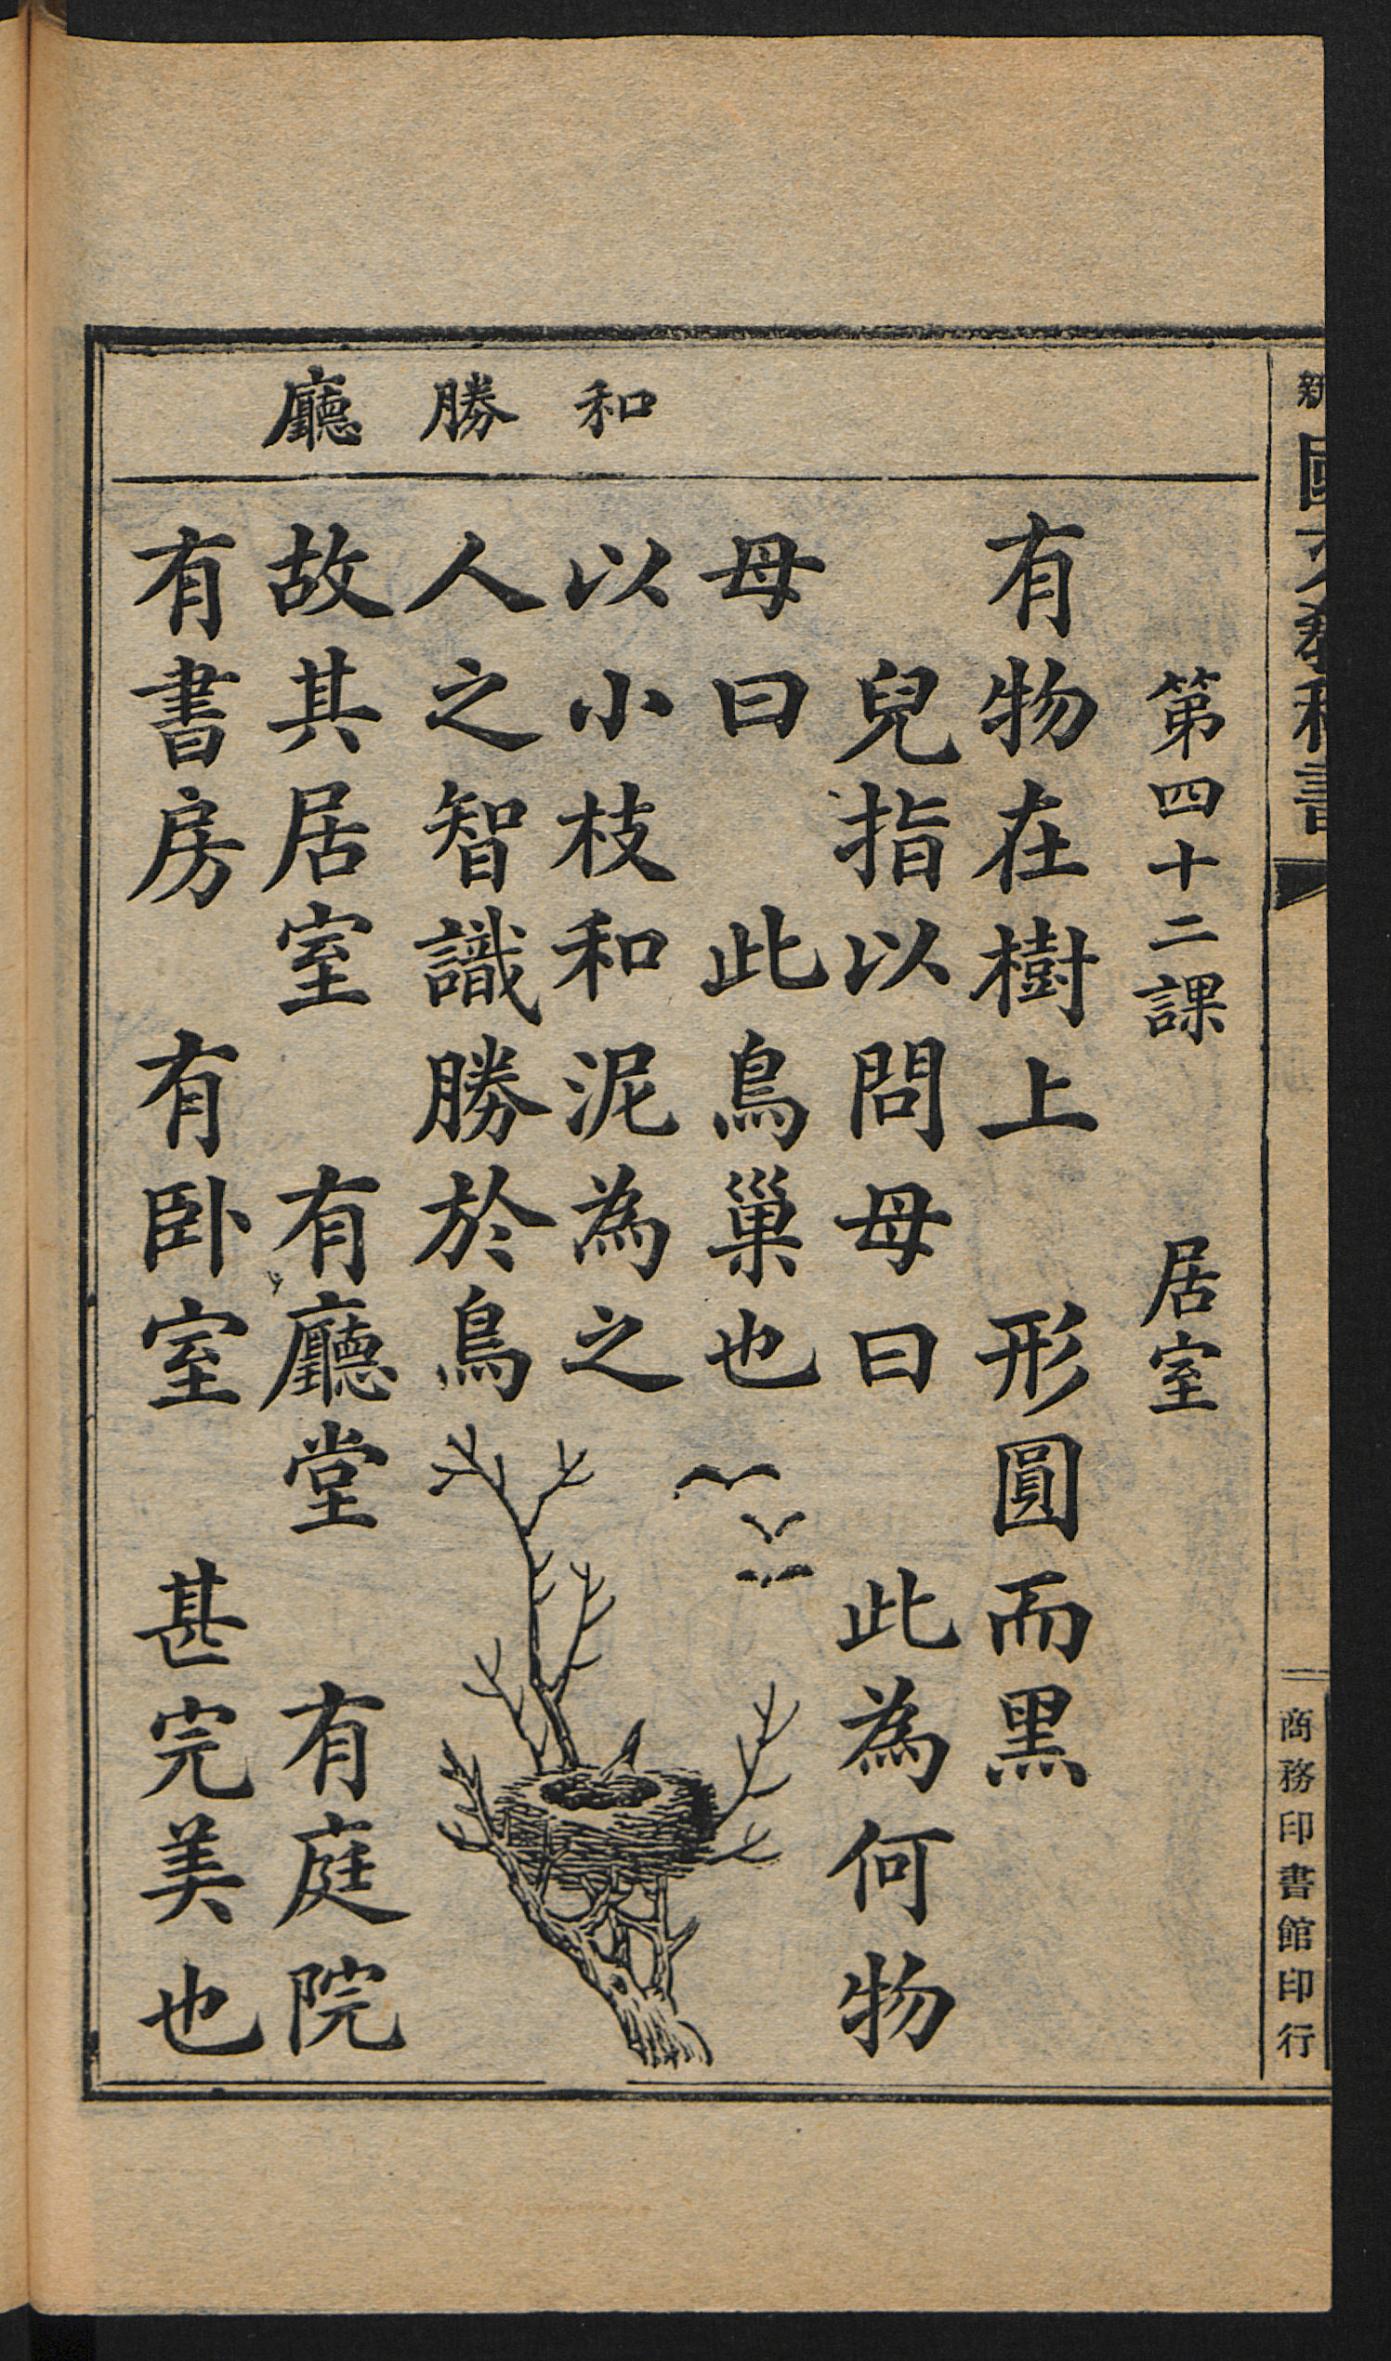 和
勝
廳
第四十二課　居室
有物在樹上　形圓而黑
兒指以問母曰　此為何物
母曰　此鳥巢也
以小枝和泥為之
人之智識勝於鳥
故其居室　有廳堂　有庭院
有書房　有卧室　甚完美也
商務印書館印行